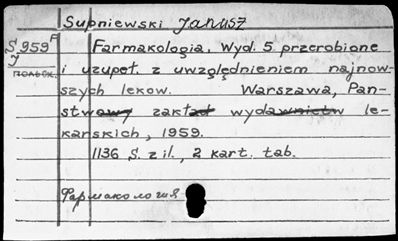 Supniewski Janusz
S 959 F
J
польск.
Farmakologia. Wyd. 5 przerobione
i uzupeł. z uwzględnieniem najnow-
szych leków. Warszawa, Pań-
stwowy zakład wydawnictw le-
karskich, 1959.
1136 S. z il., 2 kart. tab.
Фармакология